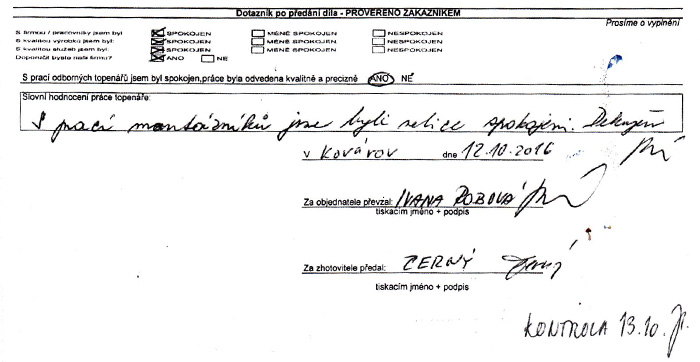 Dotazník po předání díla - PROVĚŘENO ZÁKAZNÍKEM
Prosíme o vyplnění
S firmou / pracovníky jsem byl SPOKOJEN MÉNĚ SPOKOJEN NESPOKOJEN
S kvalitou výrobků jsem byl: SPOKOJEN MÉNĚ SPOKOJEN NESPOKOJEN
S kvalitou služeb jsem byl: SPOKOJEN MÉNĚ SPOKOJEN NESPOKOJEN
Doporučil byste naši firmu? ANO NE
S prací odborných topenářů jsem byl spokojen,práce byla odvedena kvalitně a precizně ANO NE
Slovní hodnocení práce topenáře:
S prací montážníků jsme byli velice spokojeni. Děkujem
v Kovářov dne 12.10.2016
Za objednatele převzal: IVANA
tiskacím jméno + podpis
Za zhotovitele předal: ČERNÝ
tiskacím jméno + podpis
KONTROLA 13.10.